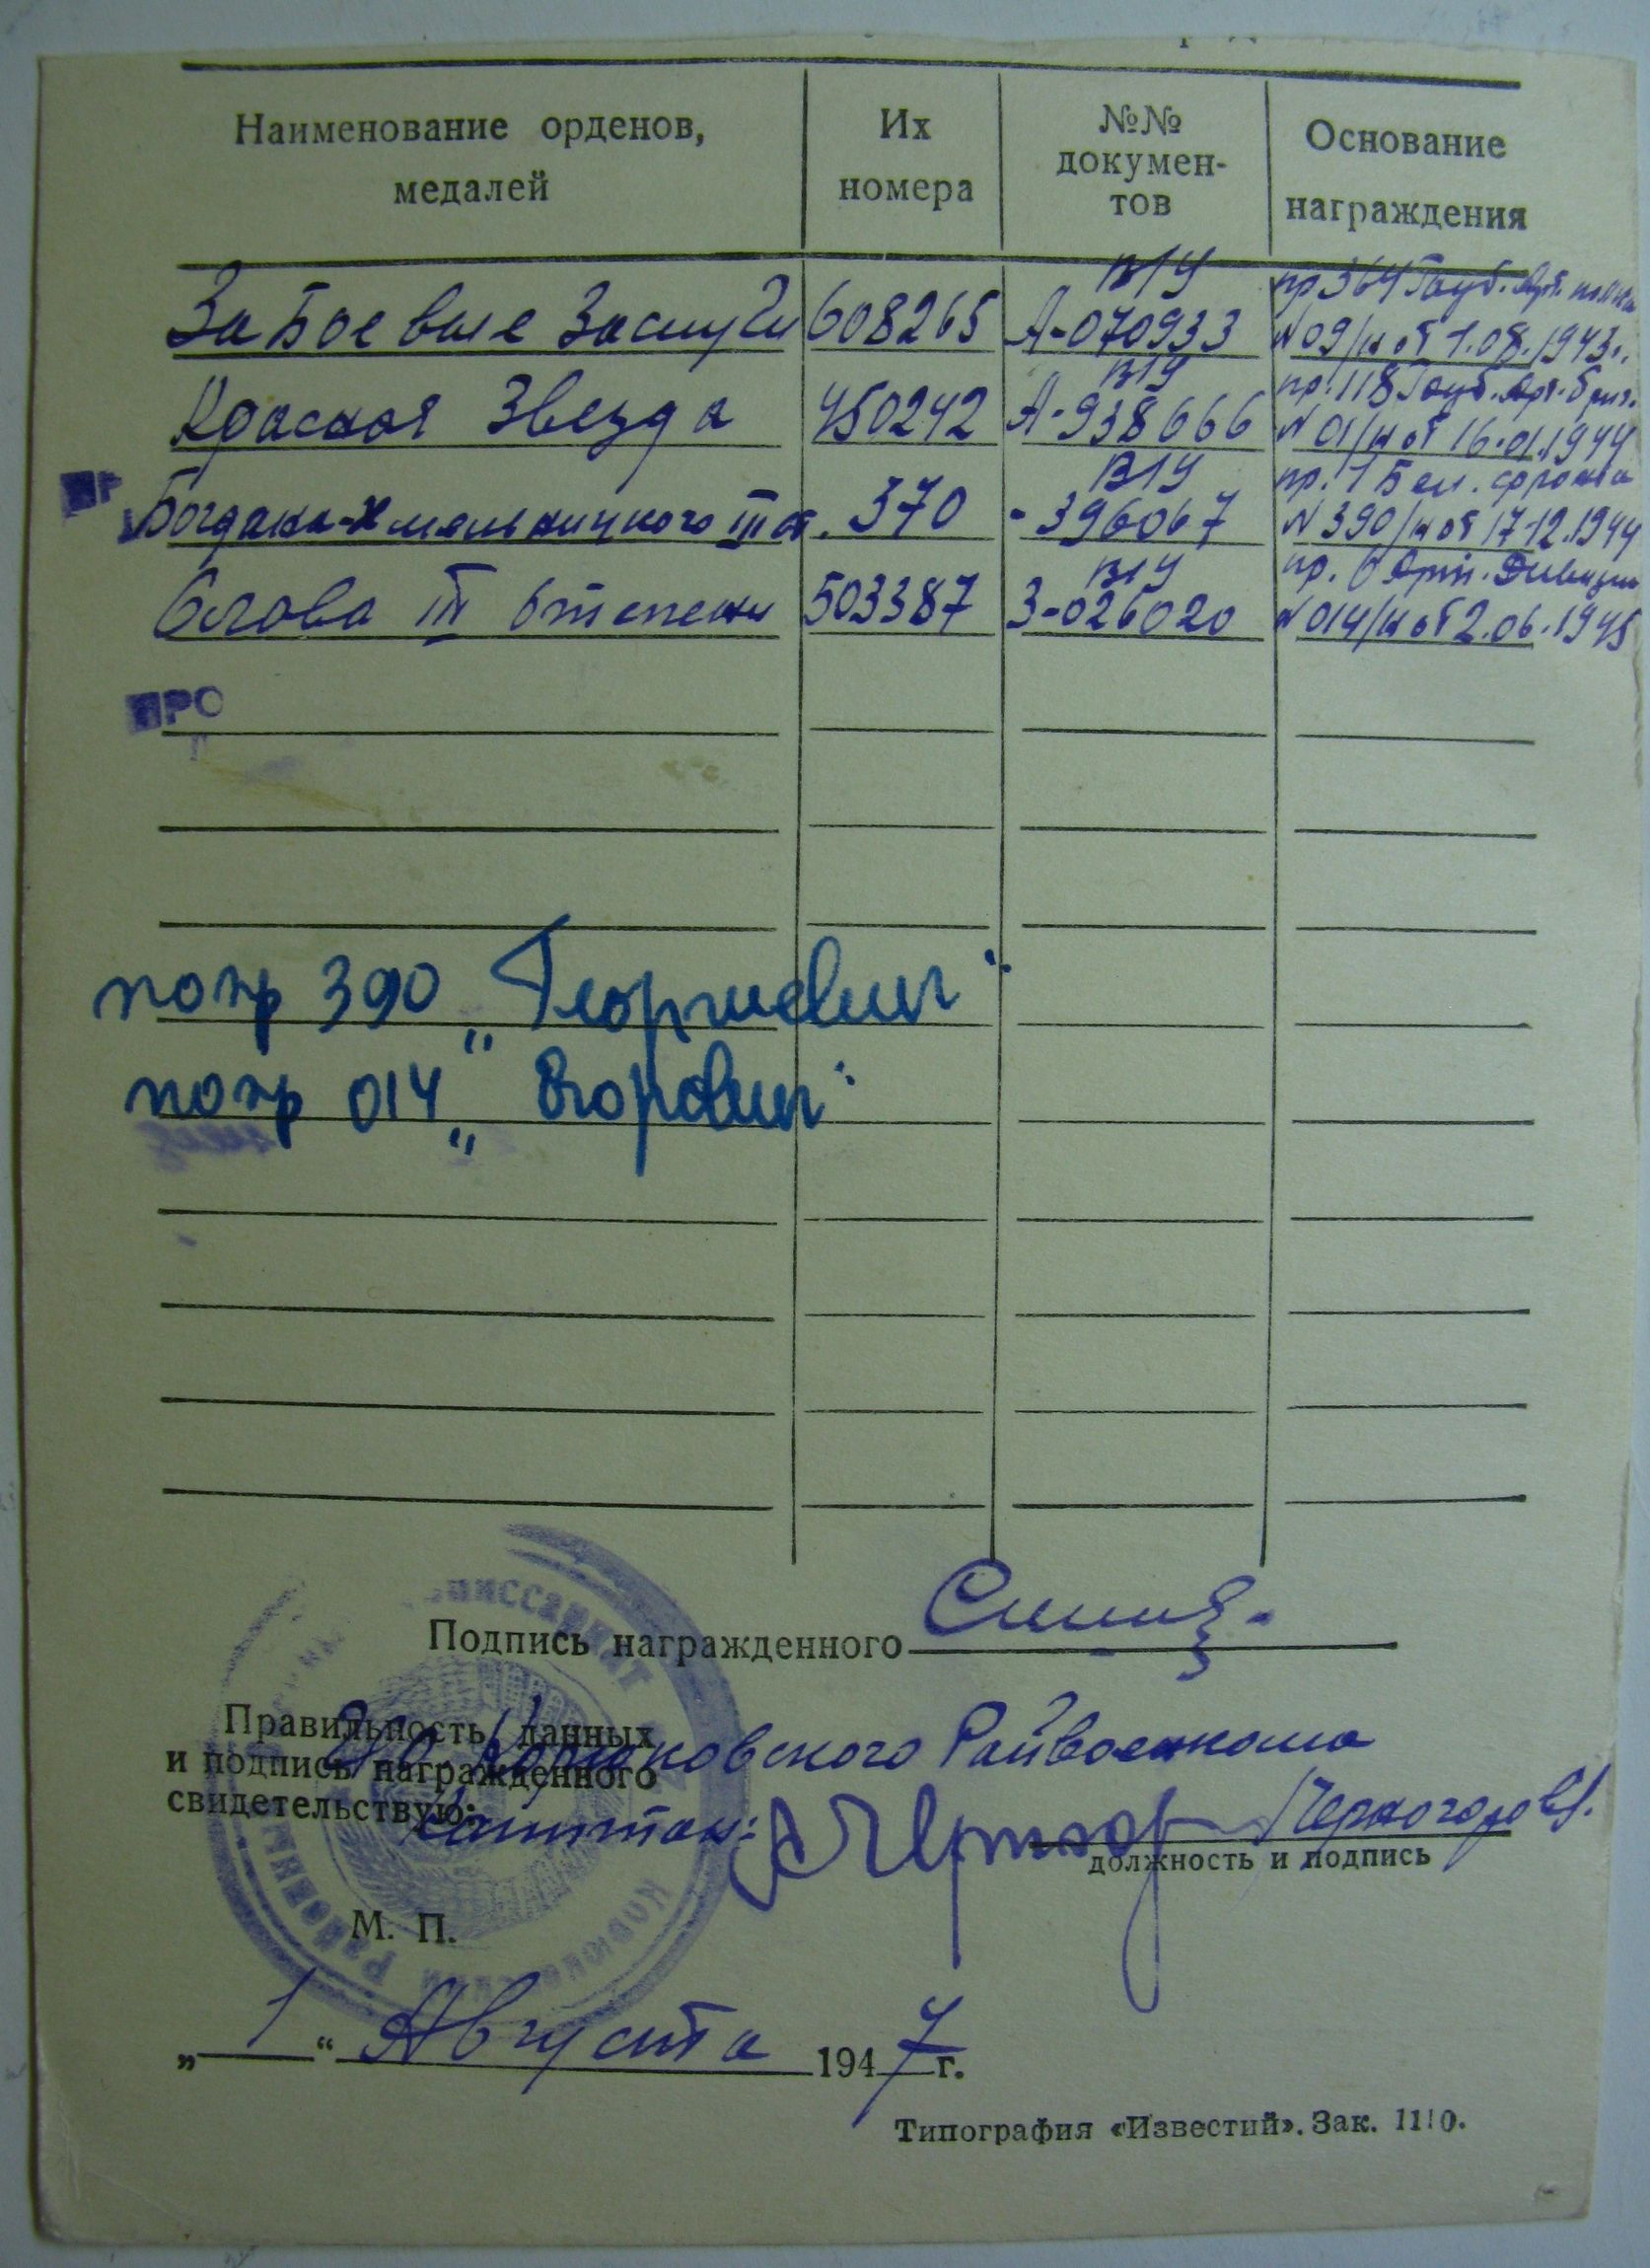 Наименование орденов, медалей
Их номера
№№ документов
Основание награждения
За Боевые Заслуги 608265 ВIУ А-070933 пр 364 Гауб. Арт. полка №09/н от 1.08.1943г.
Красная Звезда 450242 ВIУ А-938666 пр. 118 Гауб. Арт. бриг. №01/н от 16.01.1944
Богдана-Хмельницкого III ст. 370 ВIУ -396067 пр. 1 Бел. фронта №390/н от 17.12.1944
Слава III степени 503387 ВIУ З-026020 пр. 6 Арт. Дивизии №014/н от 2.06.1945
ПРО
по пр 390 „Георгиевич"
по пр 014 „Егорович"
Подпись награжденного
Правильность данных
и подпись награжденного
свидетельствую:
Корюковского Райвоенкома
Капитан: Черногоров
должность и подпись
М. П.
„ 1 “ Августа 1947 г.
Типография «Известий». Зак. 1110.